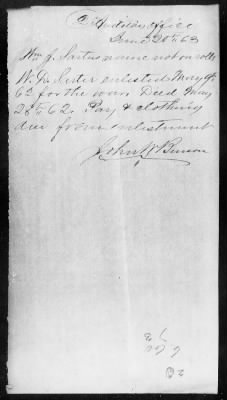 Auditors Office
June 20th 63
Wm J. Sartus name not on rolls
W. J. Serter enlisted May 9th
62 for the war. Died May
28th 62. Pay & clothing
due from enlistment
John H Benson